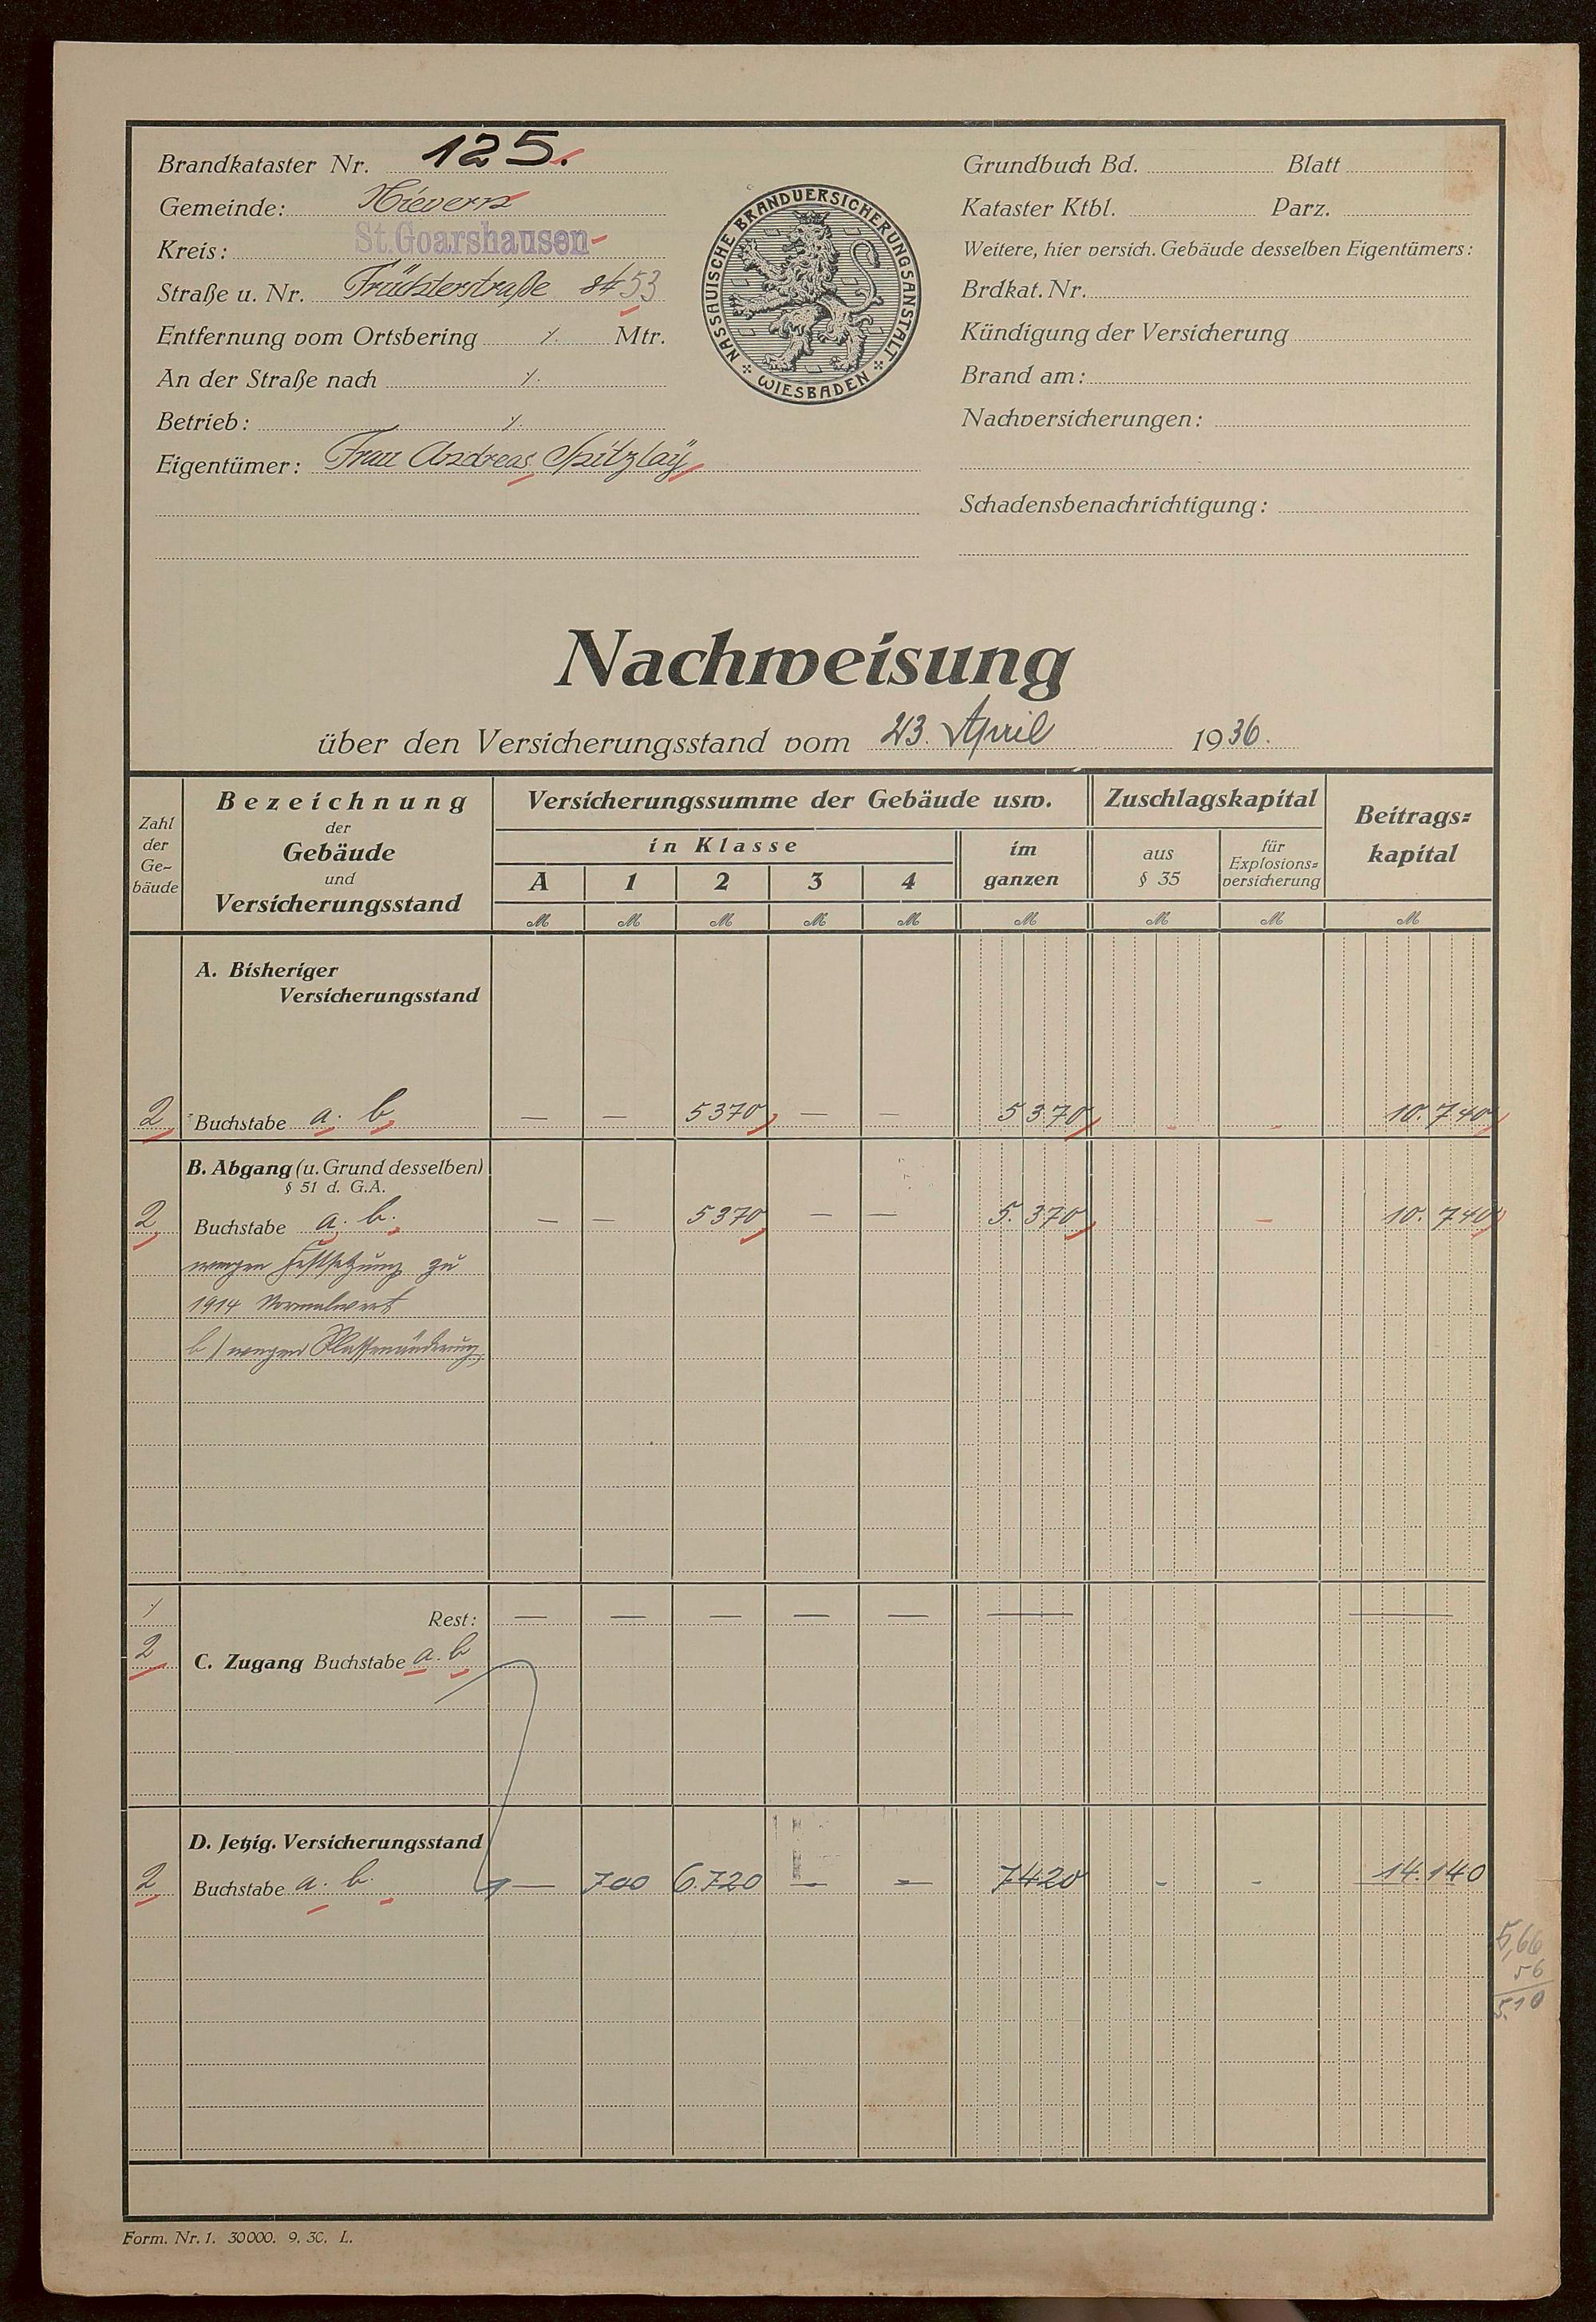 Brandkataster Nr. 125.
Gemeinde: Nievern
Kreis: St. Goarshausen
Straße u. Nr. 53
Entfernung vom Ortsbering ⁒ Mtr.
An der Straße nach ⁒
Betrieb: ⁒
Eigentümer: Frau Andreas Spitzlaÿ
NASSAUISCHE BRANDVERSICHERUNGSANSTALT
WIESBADEN
Grundbuch Bd. Blatt
Kataster Ktbl. Parz.
Weitere, hier versich. Gebäude desselben Eigentümers:
Brdkat. Nr.
Kündigung der Versicherung
Brand am:
Nachversicherungen:
Schadensbenachrichtigung:
Nachweisung
über den Versicherungsstand vom 23. April 1936.
Zahl der Ge-bäude
Bezeichnung
der
Gebäude
und
Versicherungsstand
Versicherungssumme der Gebäude usw.
in Klasse
A 1 2 3 4
im ganzen
Zuschlagskapital
aus § 35
für Explosions=versicherung
Beitrags=kapital
M M M M M M M M M
A. Bisheriger
Versicherungsstand
2 Buchstabe a. b. — — 5370 — — 5 370 - - 10. 740
B. Abgang (u. Grund desselben)
§ 51 d. G.A.
2 Buchstabe a. b. — — 5370 — — 5. 370 — 10. 740
wegen Festsetzung zu
1914 Normalwert
b) wegen Klassenänderung
⁒ Rest: — — — — — — —
2 C. Zugang Buchstabe a. b
D. Jetzig. Versicherungsstand
2 Buchstabe a. b. — 700 6.720 — — 7420 - - 14.140
5,66
56
5.10
Form. Nr. 1. 30000. 9. 30. L.